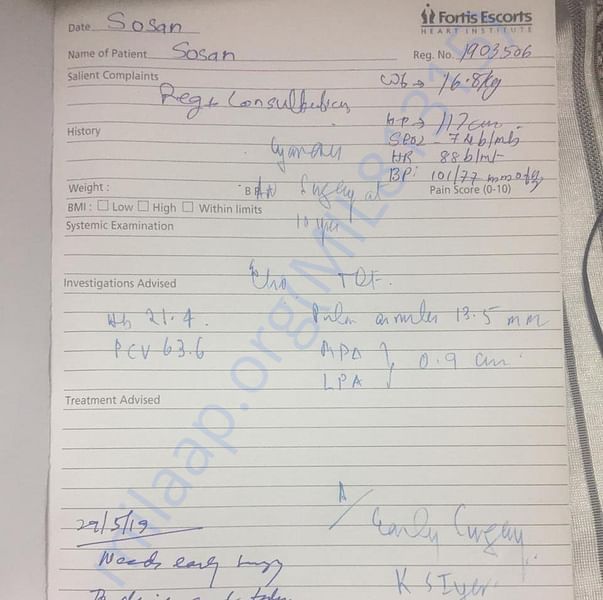 Fortis Escorts
HEART INSTITUTE
Date Sosan
Name of Patient Sosan Reg. No. 1903506
Salient Complaints Wt → 16.8kg
Reg + Consultation
HT → 117cm.
History SPO2 - 74 b/mts
HR 88 b/mt
BP: 101/77 mmofHg
Weight : Surgery at Pain Score (0-10)
BMI : Low High Within limits
10 yrs
Systemic Examination
Echo TOF.
Investigations Advised
Hb 21.4. Pulm annulus 13.5 mm
PCV 63.6 MPA } 0.9 cm.
LPA
Treatment Advised
A/ Early Surgery.
29/5/19
Needs early surgery
K S Iyer.
milaap.org